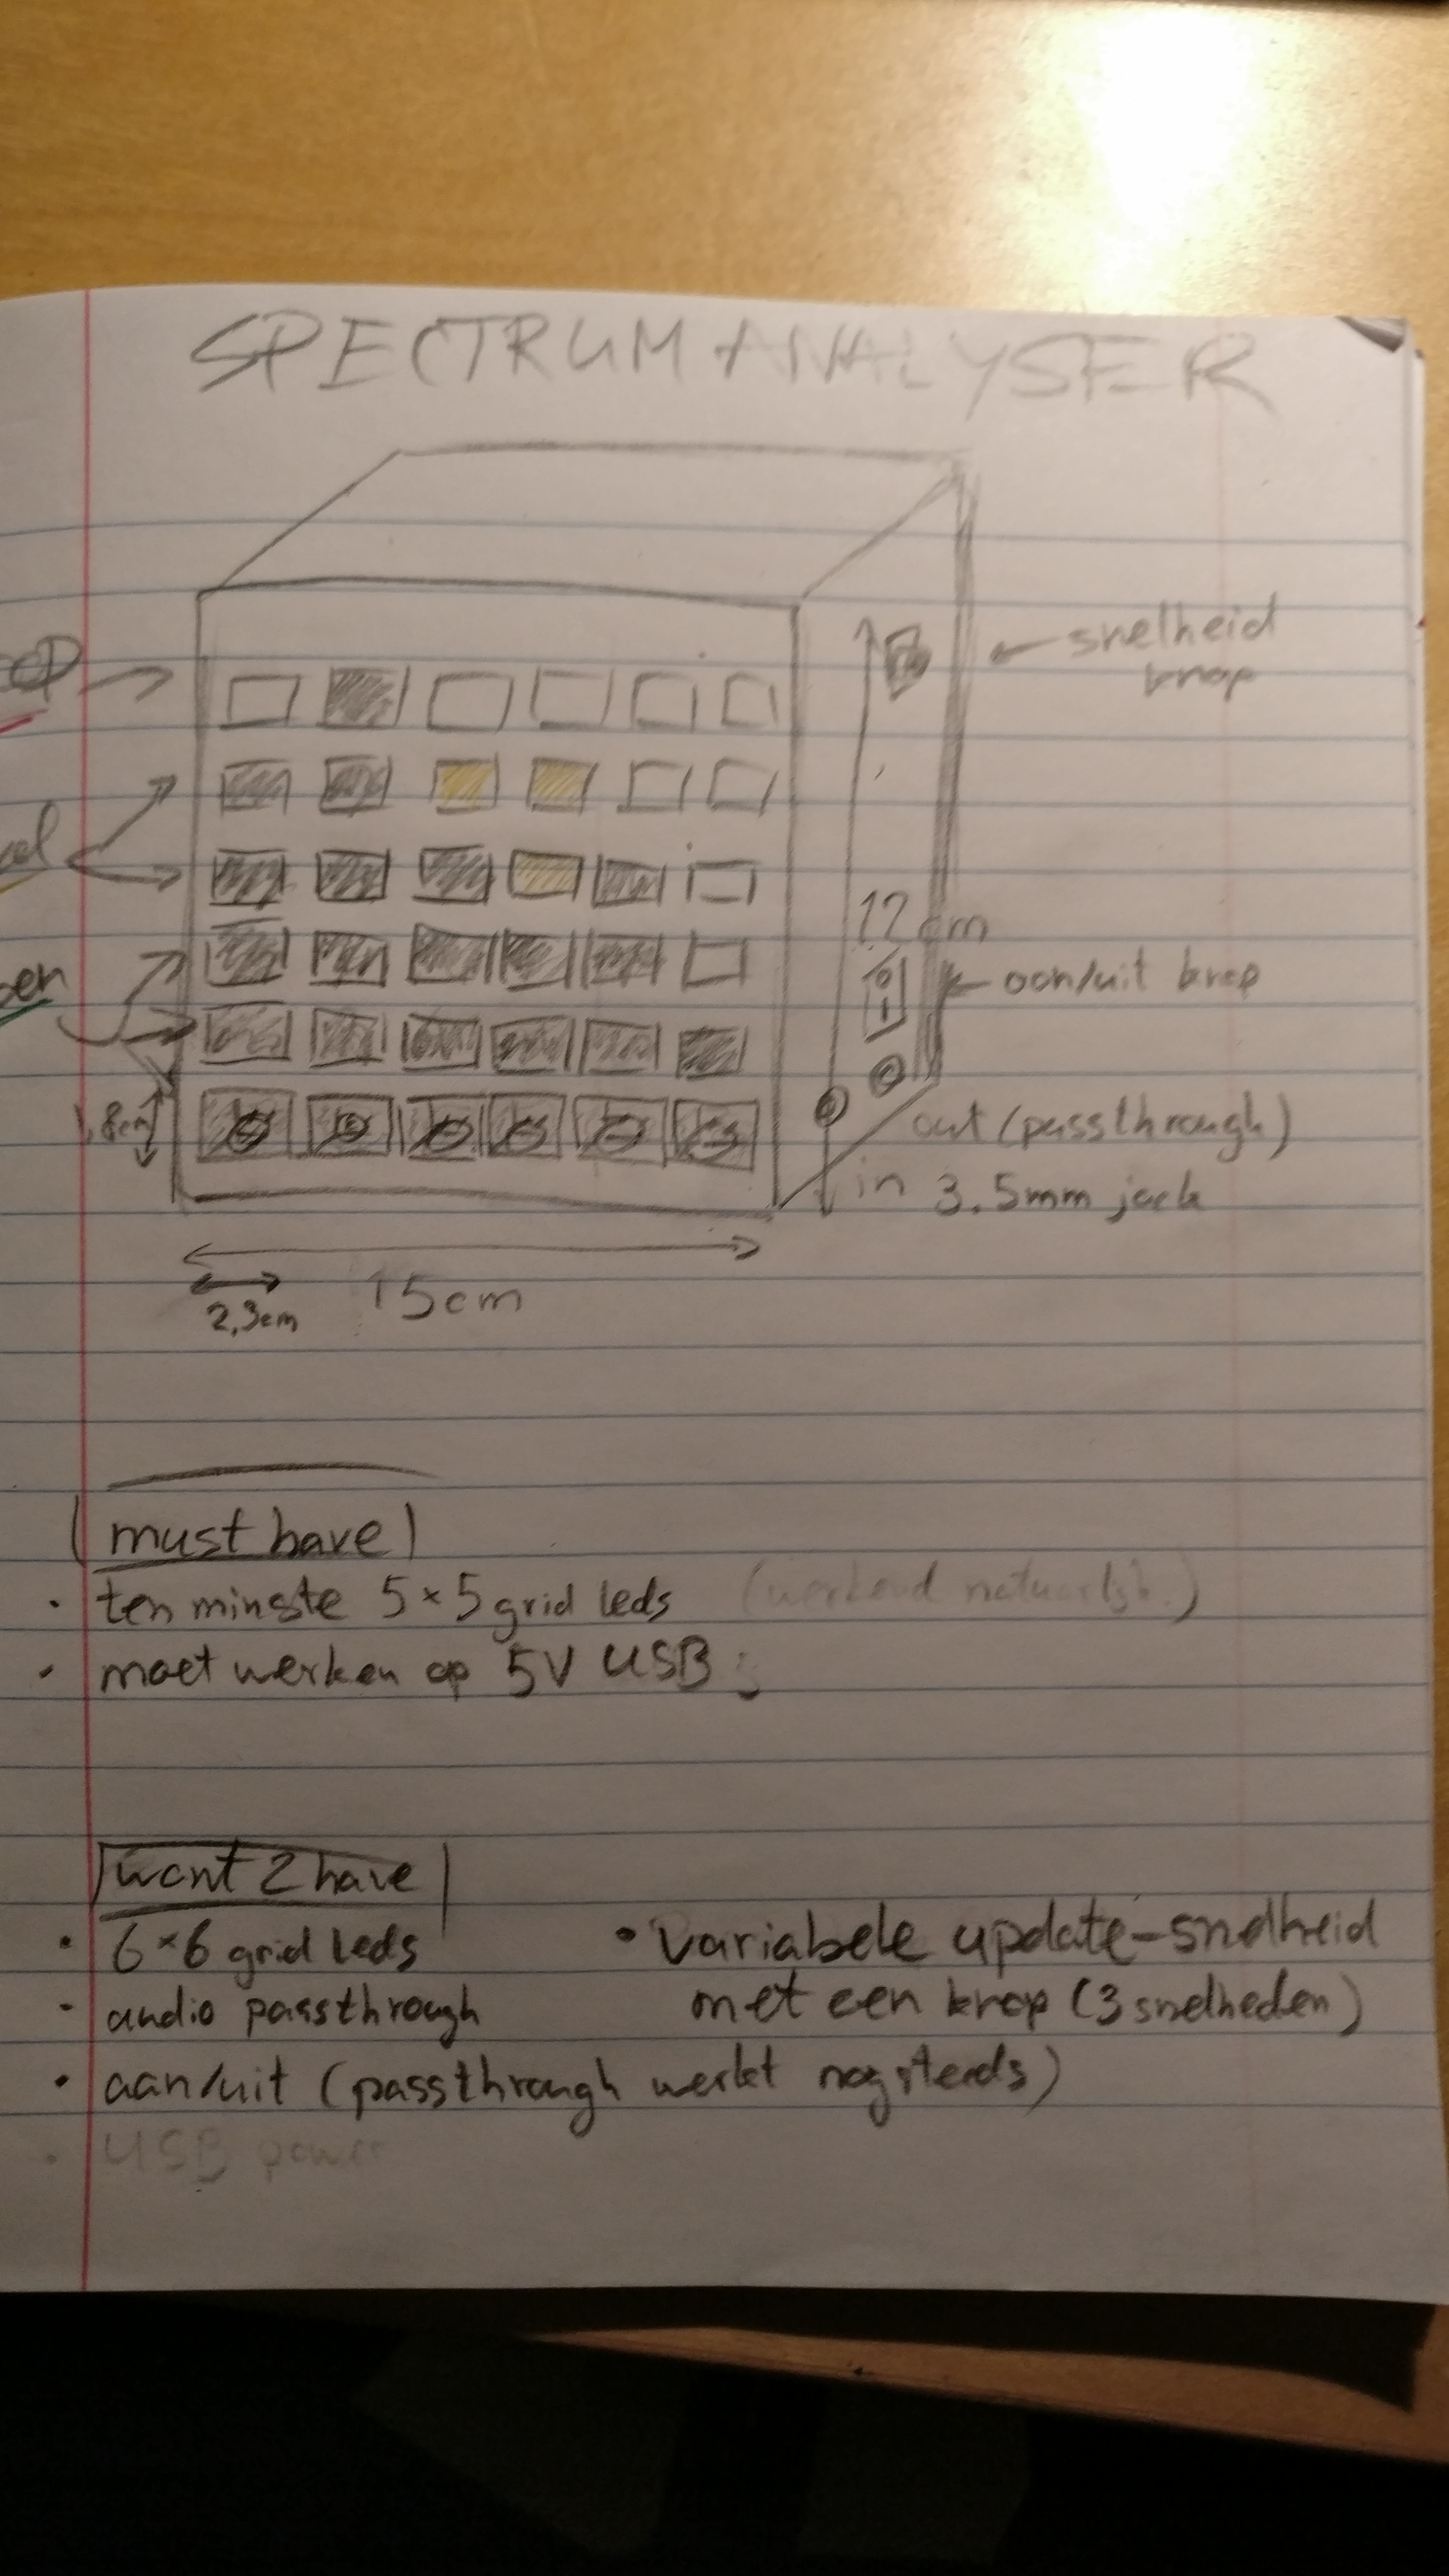 SPECTRUM ANALYSER
snelheid
knop
12 cm
aan/uit knop
out (passthrough)
in 3.5mm jack
15cm
2,3cm
must have
• ten minste 5×5 grid leds (werkend natuurlijk.)
• moet werken op 5V USB
want 2 have
• 6×6 grid leds
• audio passthrough
• aan/uit (passthrough werkt nog steeds)
• USB power
• Variabele update-snelheid
met een knop (3 snelheden)